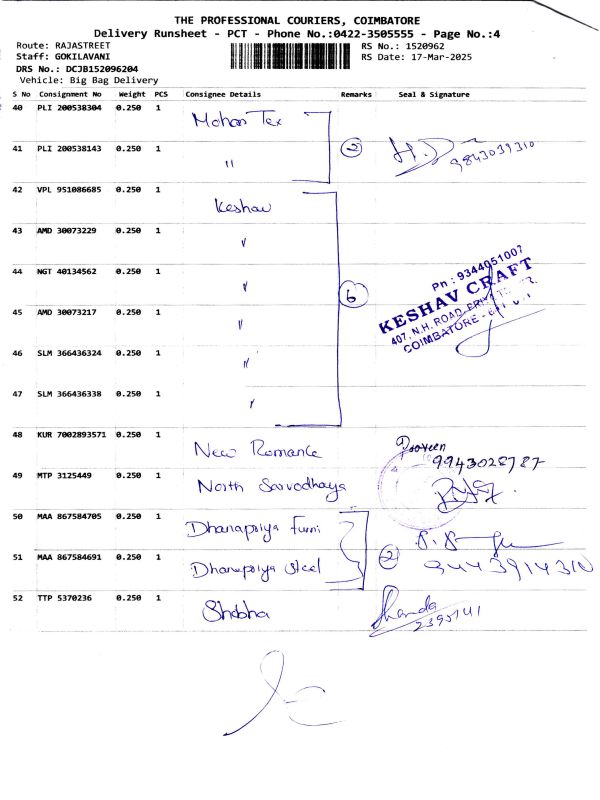 THE PROFESSIONAL COURIERS, COIMBATORE
Delivery Runsheet - PCT - Phone No.:0422-3505555 - Page No.:4
Route: RAJASTREET RS No.: 1520962
Staff: GOKILAVANI RS Date: 17-Mar-2025
DRS No.: DCJB152096204
Vehicle: Big Bag Delivery
S No Consignment No Weight PCS Consignee Details Remarks Seal & Signature
40 PLI 200538304 0.250 1 Mohan Tex
41 PLI 200538143 0.250 1 " 2 9843039310
42 VPL 951086685 0.250 1 Keshav
43 AMD 30073229 0.250 1 "
44 NGT 40134562 0.250 1 " 6
Ph : 9344051007
KESHAV CRAFT
407, N.H. ROAD,
COIMBATORE -
45 AMD 30073217 0.250 1 "
46 SLM 366436324 0.250 1 "
47 SLM 366436338 0.250 1 "
48 KUR 7002893571 0.250 1 New Romance Praveen
9943028787
49 MTP 3125449 0.250 1 North Sarvodhaya
50 MAA 867584705 0.250 1 Dhanapriya Furni
51 MAA 867584691 0.250 1 Dhanapriya Steel 2 9443914310
52 TTP 5370236 0.250 1 Shobha Shanda
2395141